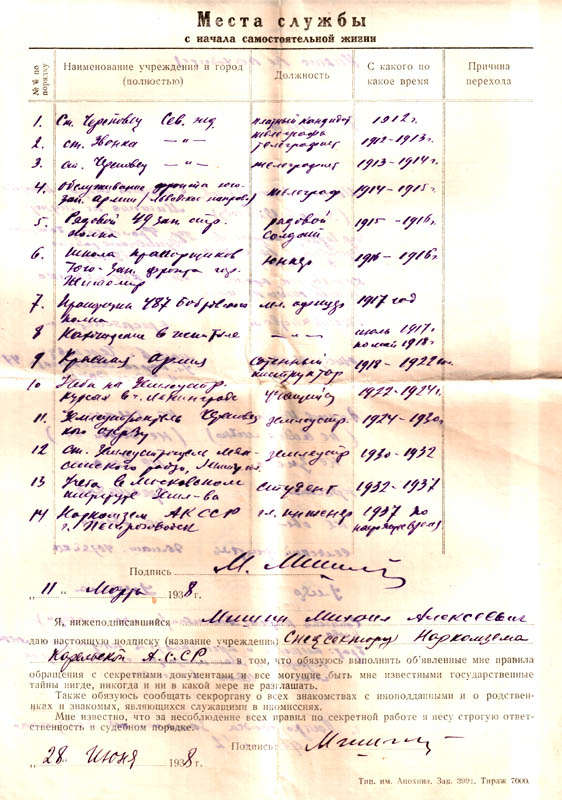 Места службы
с начала самостоятельной жизни
№№ по порядку
Наименование учреждения в город (полностью)
Должность
С какого по какое время
Причина перехода
1. Ст. Череповец Сев. жд платный кандидат телеграфа 1912 г.
2. ст. Званка —"— телеграфист 1912-1913 г.
3. ст. Череповец —"— телеграфист 1913-1914 г.
4. Обслуживание фронта юго-зап. армии телеграф 1914-1915 г.
5. Рядовой 49 зап. стр. полка рядовой солдат 1915-1916 г.
6. Школа прапорщиков Юго-Зап. фронта гор. Житомир юнкер 1916-1916 г.
7. Прапорщик 487 полка мл. офицер 1917 год
8 Нахождение в —"— июль 1917 г. по май 1918 г.
9 Красная армия инструктор 1918-1922
10 курсах в г. Ленинграде учащийся 1922-1924 г.
11. землеустр. 1924-1930 г.
12 Ст. землеустр 1930-1932
13 Учеба в Московском институте студент 1932-1937
14 Наркомзем АКССР г. Петрозаводск гл. инженер 1937 по
Подпись М. Мишин
„11" Марта 1938 г.
Я, нижеподписавшийся Мишин Михаил Алексеевич
даю настоящую подписку (название учреждения) Спецсектору Наркомзема
Карельской А.С.С.Р. в том, что обязуюсь выполнять об'явленные мне правила
обращения с секретными документами и все могущие быть мне известными государственные
тайны нигде, никогда и ни в какой мере не разглашать.
Также обязуюсь сообщать секроргану о всех знакомствах с иноподданными и о родственниках и знакомых, являющихся служащими в иномиссиях.
Мне известно, что за несоблюдение всех правил по секретной работе я несу строгую ответственность в судебном порядке.
Подпись: Мишин
„28" Июня 1938 г.
Тип. им. Анохина. Зак. 3992. Тираж 7000.